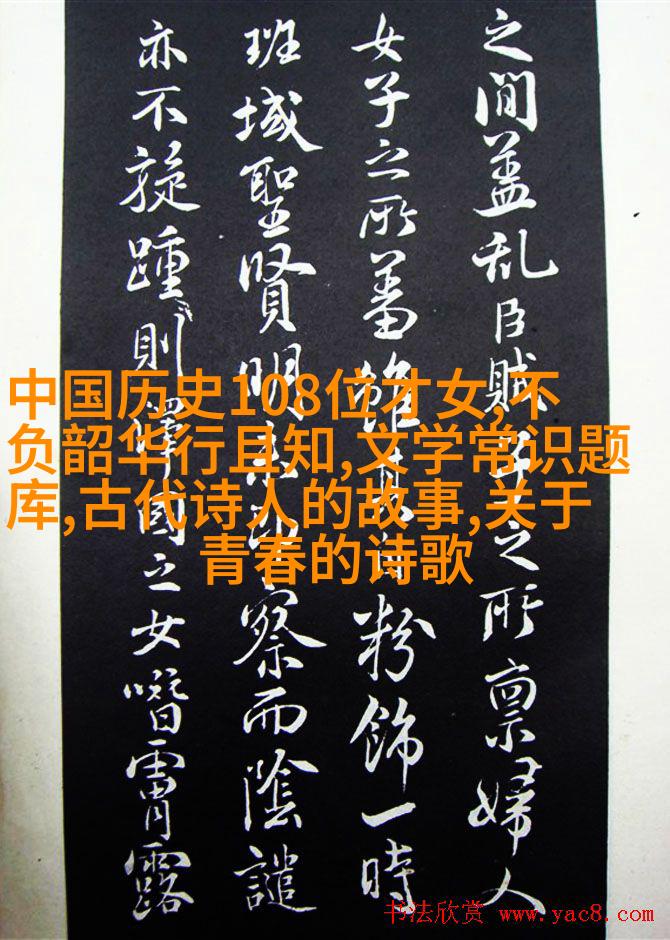 之間蓋乱臣賊子之所禀婦人
女子之所蓄雖其粉飾一時
班域聖賢明察而陰譴
亦不旋踵則澤國之女噆霄露
中国历史108位才女,不
负韶华行且知,文学常识题
库,古代诗人的故事,关于
青春的诗歌
书法欣赏 www.yac8.com